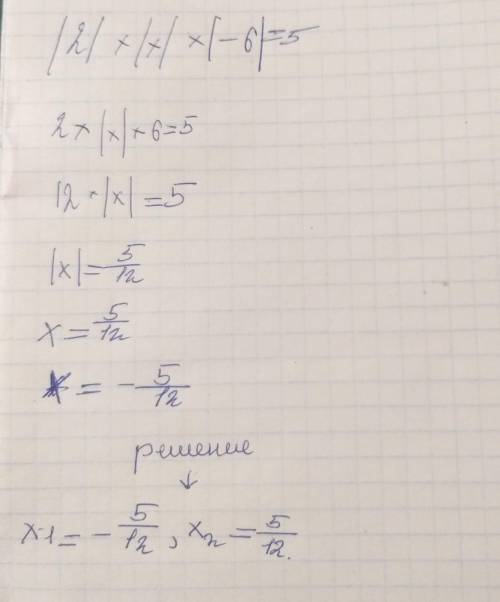 |2| × |x| × |-6| = 5
2 × |x| × 6 = 5
12 · |x| = 5
|x| = 5/12
x = 5/12
x = - 5/12
решение
↓
x1 = - 5/12, x2 = 5/12.